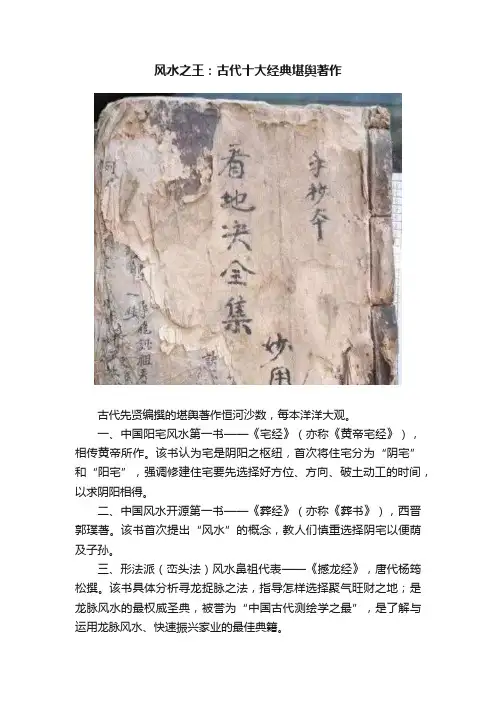 风水之王：古代十大经典堪舆著作
手抄本
看地决全集
妙用
古代先贤编撰的堪舆著作恒河沙数，每本洋洋大观。
一、中国阳宅风水第一书——《宅经》（亦称《黄帝宅经》），
相传黄帝所作。该书认为宅是阴阳之枢纽，首次将住宅分为“阴宅”
和“阳宅”，强调修建住宅要先选择好方位、方向、破土动工的时间，
以求阴阳相得。
二、中国风水开源第一书——《葬经》（亦称《葬书》），西晋
郭璞著。该书首次提出“风水”的概念，教人们慎重选择阴宅以便荫
及子孙。
三、形法派（峦头法）风水鼻祖代表——《撼龙经》，唐代杨筠
松撰。该书具体分析寻龙捉脉之法，指导怎样选择聚气旺财之地；是
龙脉风水的最权威圣典，被誉为“中国古代测绘学之最”，是了解与
运用龙脉风水、快速振兴家业的最佳典籍。